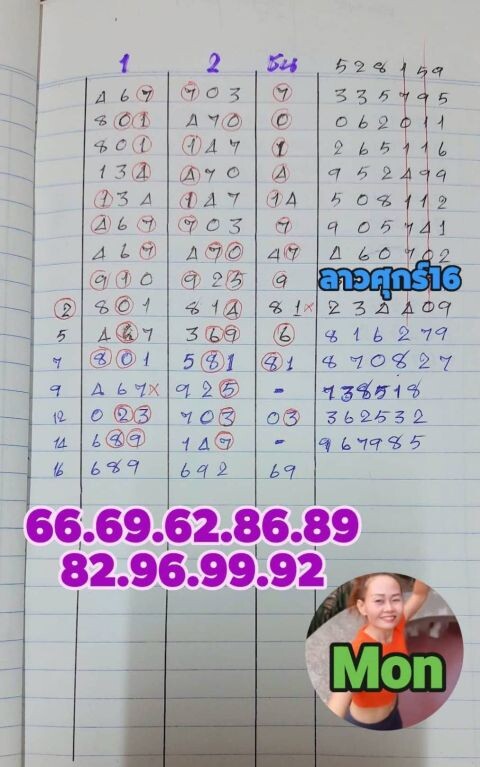 1 2 ชน 528159
467 703 7 335795
801 470 0 062011
801 147 1 265116
134 470 4 952499
134 147 14 508112
467 703 7 905741
467 470 47 460702
910 925 9
ลาวศุกร์16
2 801 814 81× 234409
5 467 369 6 816279
7 801 581 81 870827
9 467× 925 - 738518
12 023 703 03 362532
14 689 147 - 967985
16 689 692 69
66.69.62.86.89
82.96.99.92
Mon